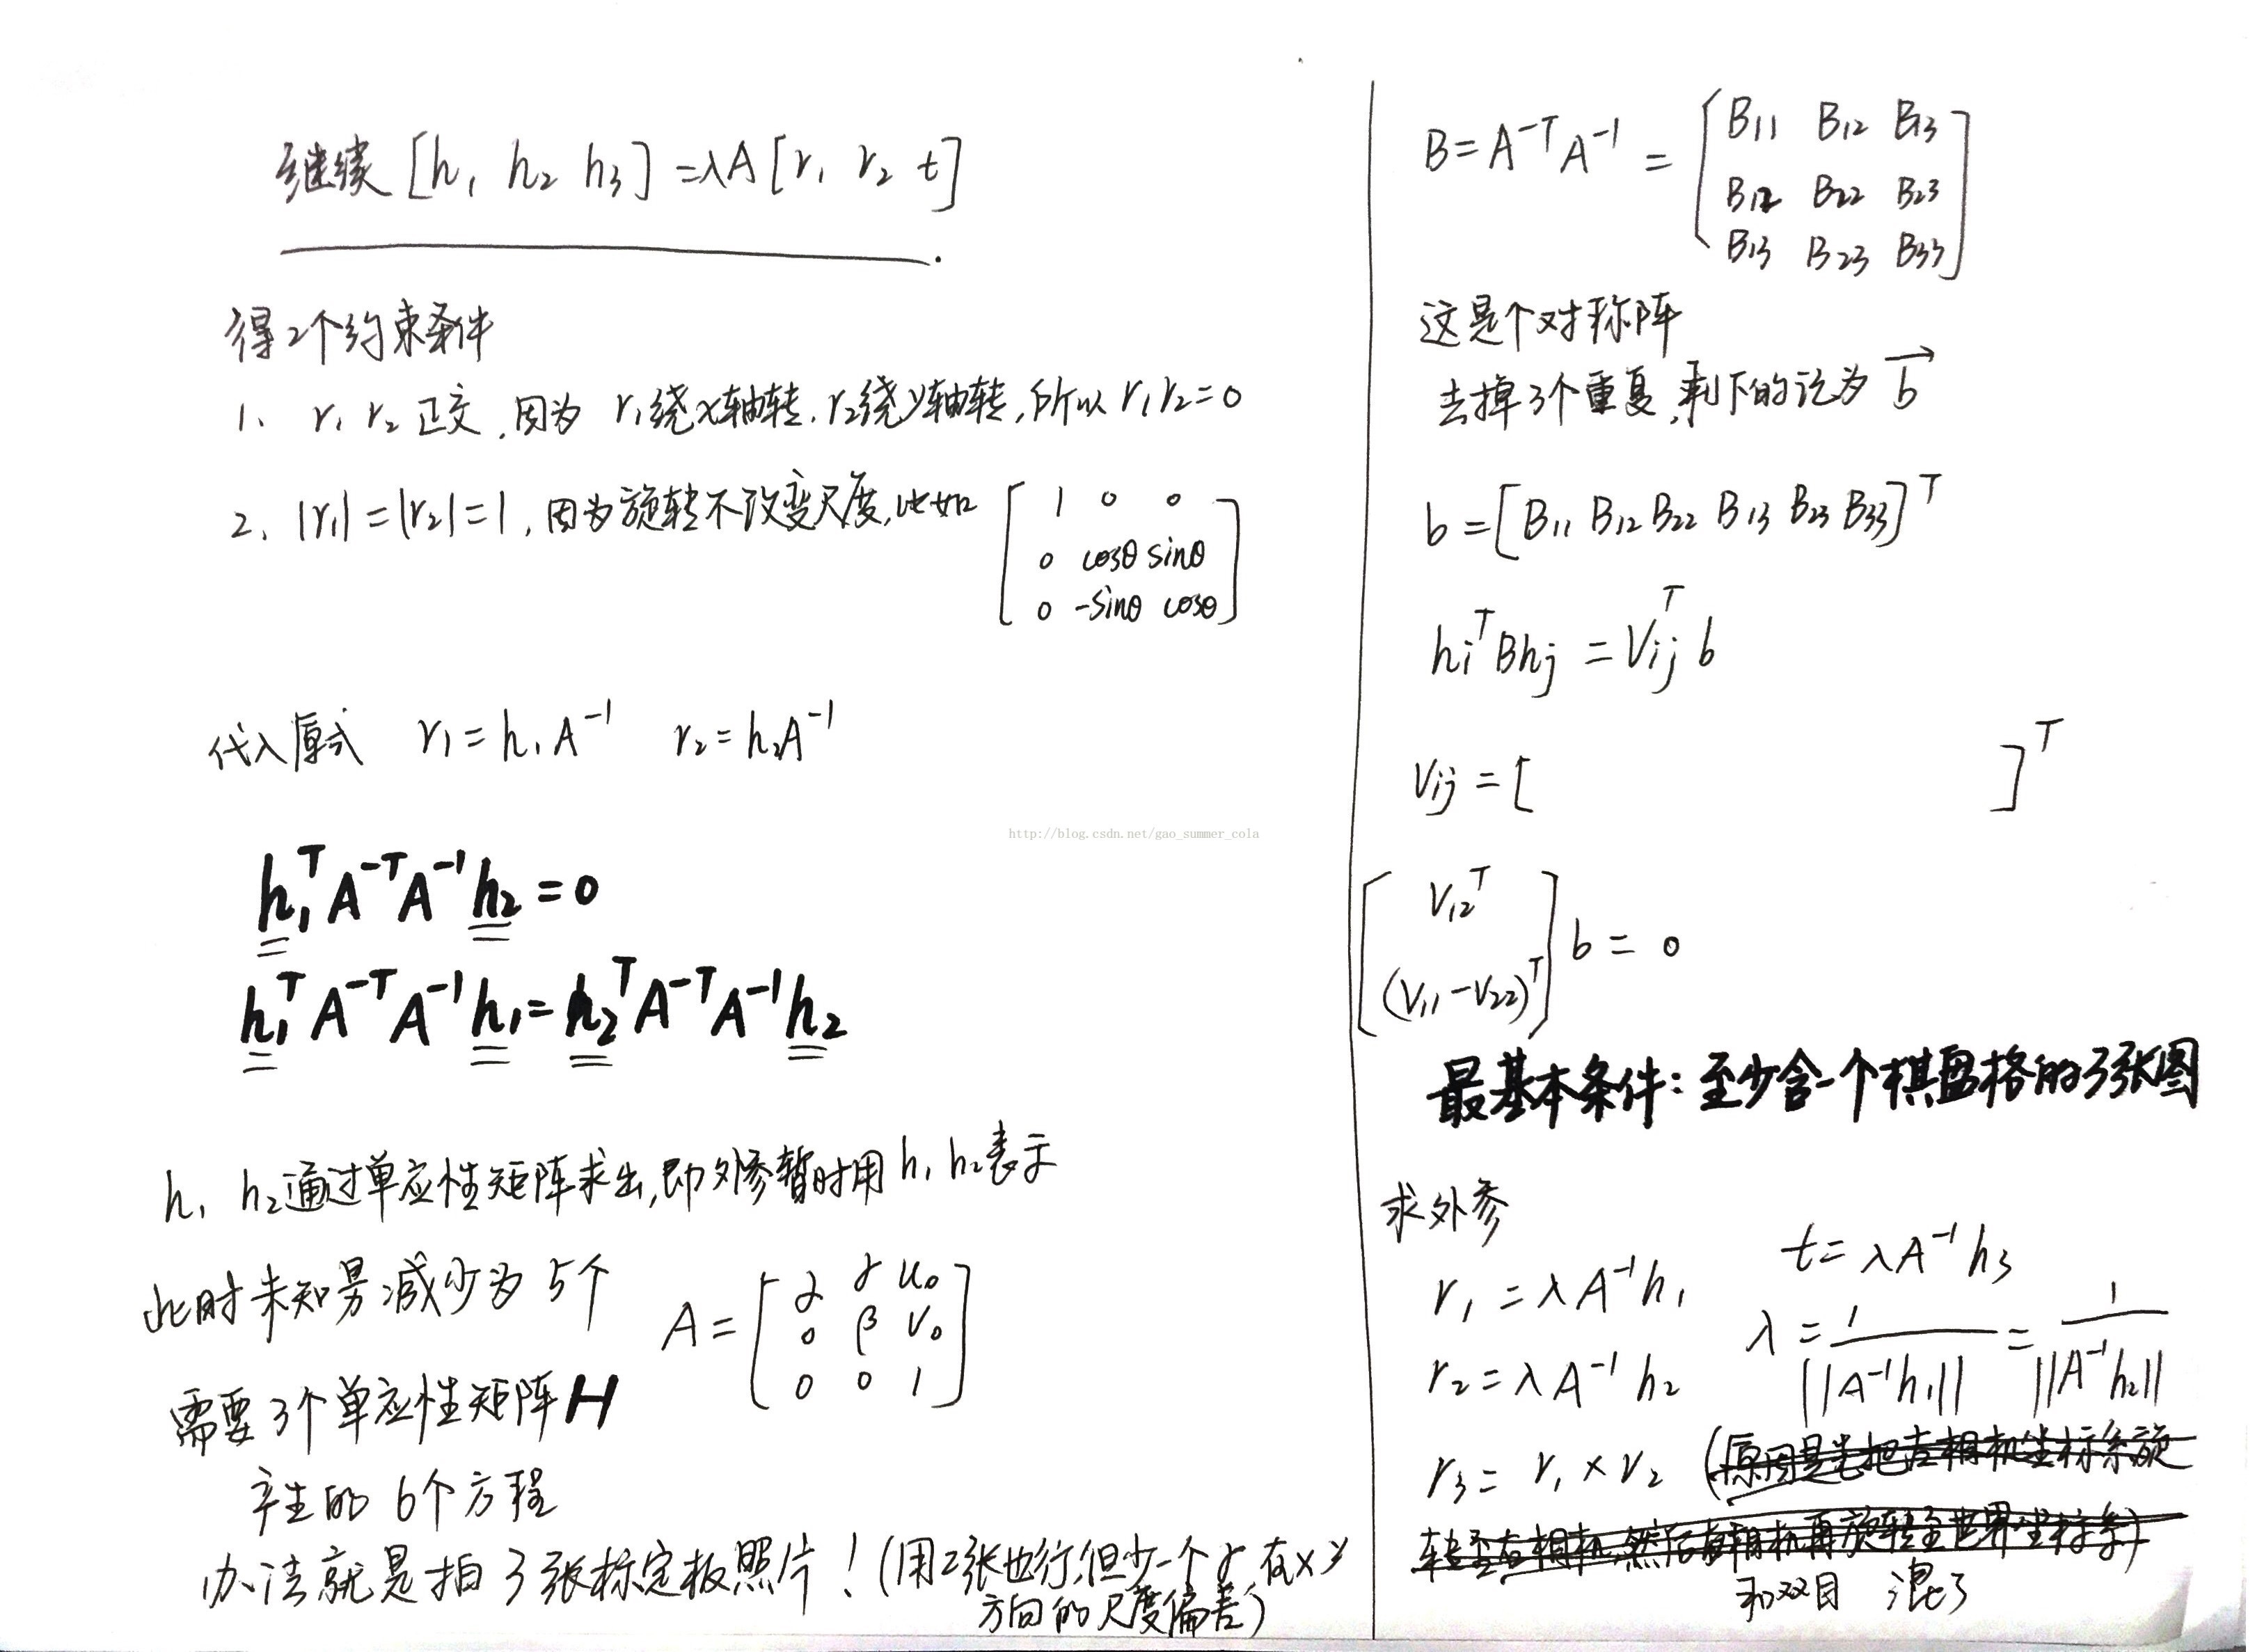 继续 [h₁ h₂ h₃] = λA [r₁ r₂ t]
得2个约束条件
1、 r₁ r₂ 正交，因为 r₁绕x轴转，r₂绕y轴转，所以 r₁r₂=0
2、|r₁|=|r₂|=1，因为旋转不改变尺度，比如 [1 0 0
0 cosθ sinθ
0 -sinθ cosθ]
代入原式 r₁=h₁A⁻¹ r₂=h₂A⁻¹
h₁ᵀA⁻ᵀA⁻¹h₂=0
h₁ᵀA⁻ᵀA⁻¹h₁=h₂ᵀA⁻ᵀA⁻¹h₂
h₁ h₂通过单应性矩阵求出，即外参暂时用h₁ h₂表示
此时未知易减少为 5个
A= [α γ u₀
0 β v₀
0 0 1]
需要3个单应性矩阵H
产生的 6个方程
办法就是拍3张标定板照片！(用2张也行，但少一个γ，在x y
方向的尺度偏差)
http://blog.csdn.net/gao_summer_cola
B=A⁻ᵀA⁻¹= [B₁₁ B₁₂ B₁₃
B₁₂ B₂₂ B₂₃
B₁₃ B₂₃ B₃₃]
这是个对称阵
去掉3个重复，剩下的记为 b⃗
b=[B₁₁ B₁₂ B₂₂ B₁₃ B₂₃ B₃₃]ᵀ
hᵢᵀBhⱼ=Vᵢⱼᵀb
Vᵢⱼ=[ ]ᵀ
[V₁₂ᵀ
(V₁₁-V₂₂)ᵀ] b = 0
最基本条件：至少含一个棋盘格的3张图
求外参
r₁=λA⁻¹h₁ t=λA⁻¹h₃
r₂=λA⁻¹h₂ λ=1/||A⁻¹h₁||=1/||A⁻¹h₂||
r₃=r₁×r₂ (原因是先把左相机坐标系旋
转至右相机，然后右相机再旋转至世界坐标系)
和双目 混了